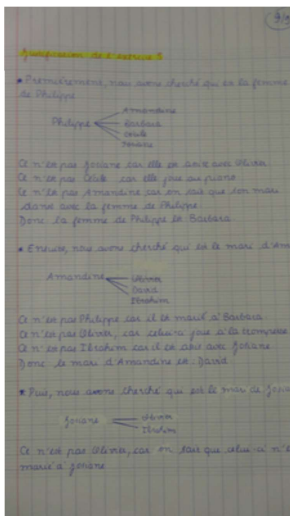 Justification de l'exercice 3
* Premièrement, nous avons cherché qui est la femme
de Philippe
Amandine
Philippe Barbara
Cécile
Josiane
Ce n'est pas Josiane car elle est assise avec Olivier.
Ce n'est pas Cécile car elle joue au piano
Ce n'est pas Amandine car on sait que son mari
danse avec la femme de Philippe
Donc la femme de Philippe est Barbara
* Ensuite, nous avons cherché qui est le mari d'Am
Amandine Olivier
David
Ibrahim
Ce n'est pas Philippe car il est marié à Barbara.
Ce n'est pas Olivier, car celui-ci joue à la trompette
Ce n'est pas Ibrahim car il est assis avec Josiane
Donc le mari d'Amandine est David.
* Puis, nous avons cherché qui est le mari de Josi
Josiane Olivier
Ibrahim
Ce n'est pas Olivier, car on sait que celui-ci n'e
marié à Josiane